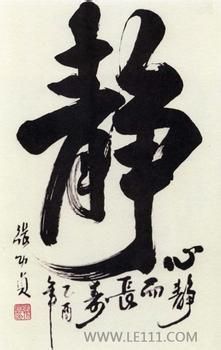 静
心静
而
長
寿
乙酉
年
WWW.LE111.COM